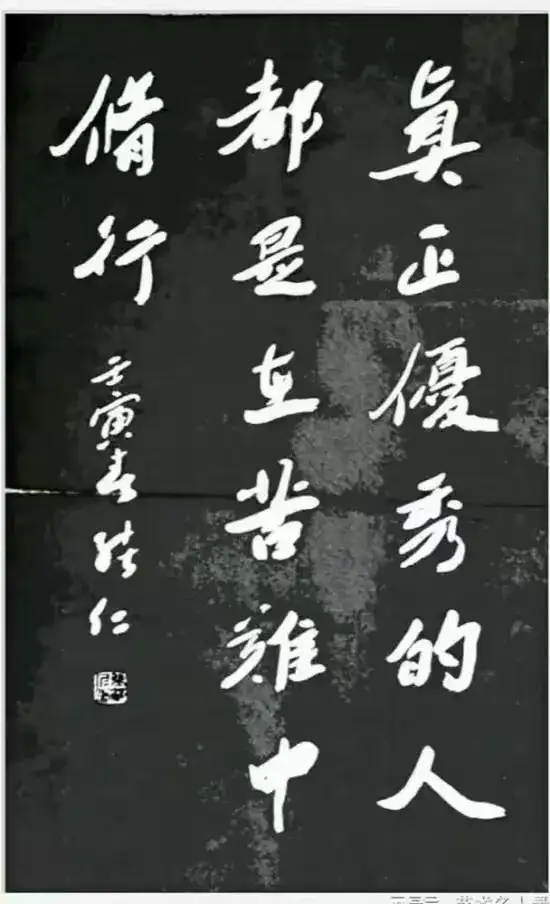 真正優秀的人
都是在苦難中
脩行
壬寅春 仁